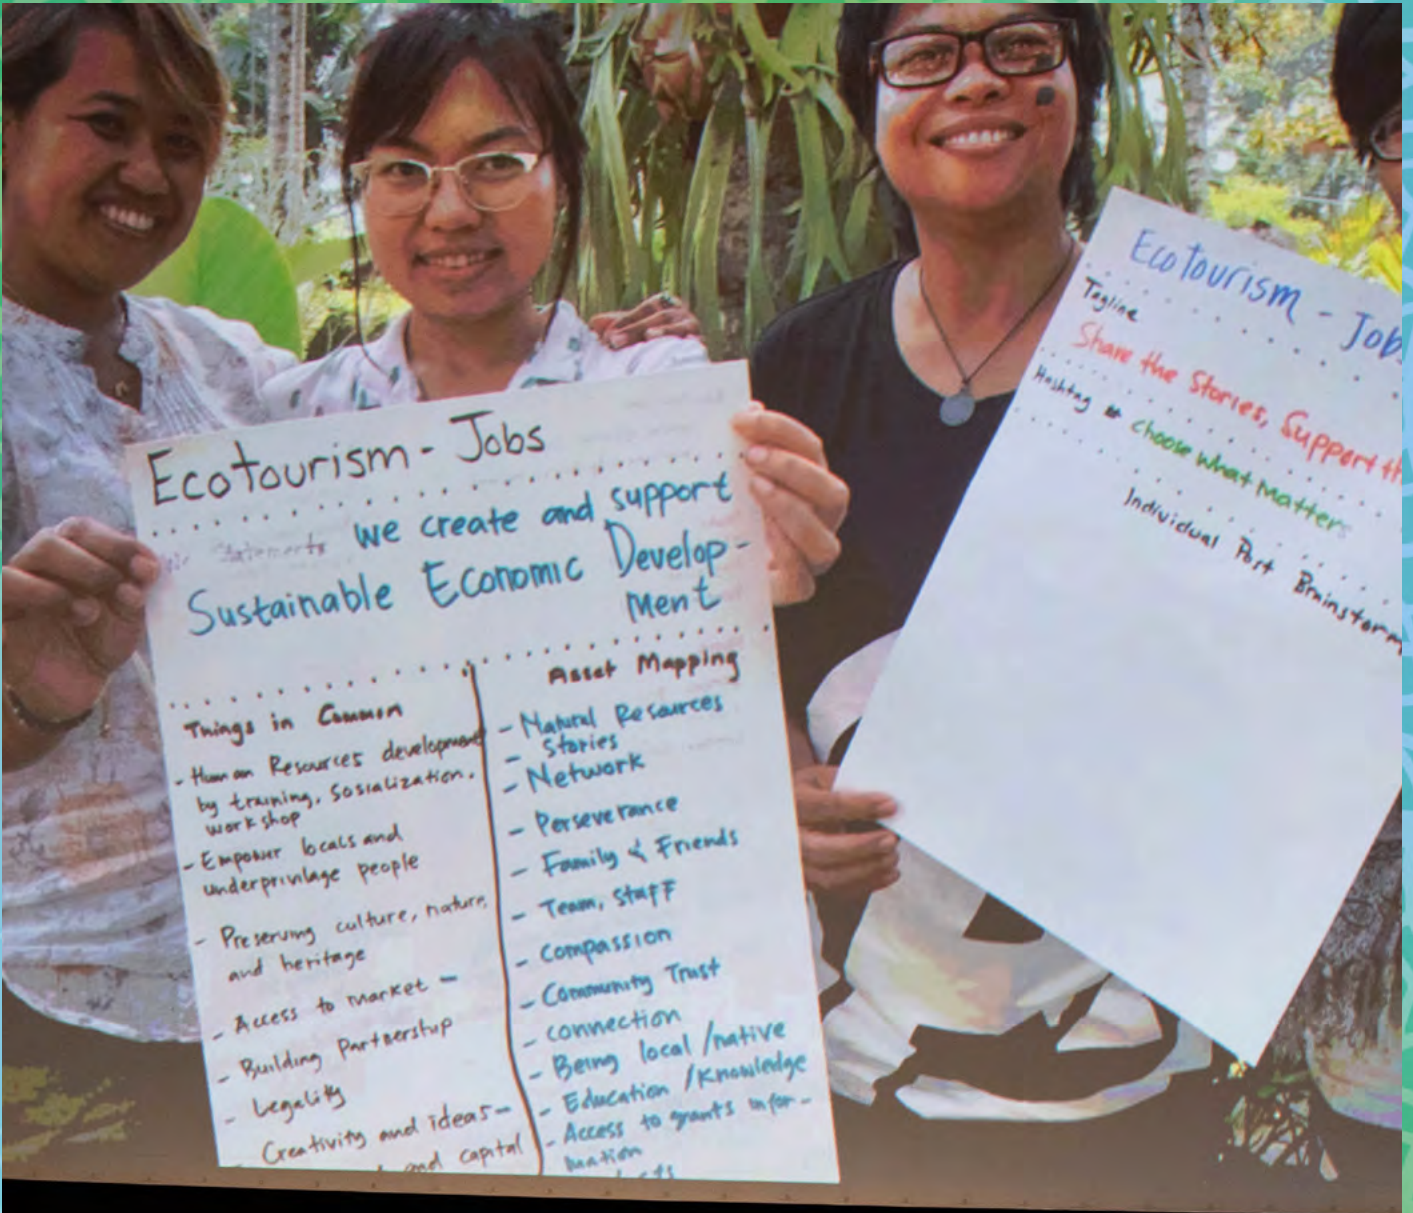 Ecotourism - Jobs
Statements we create and support
Sustainable Economic Develop-
ment
Things in Common
- Human Resources development
by training, sosialization,
workshop
- Empower locals and
underprivilage people
- Preserving culture, nature,
and heritage
- Access to market -
- Building Partnership
- Legality
- Creativity and ideas -
and capital
Asset Mapping
- Natural Resources
- Stories
- Network
- Perseverance
- Family & Friends
- Team, Staff
- Compassion
- Community Trust
- connection
- Being local / native
- Education / Knowledge
- Access to grants infor-
mation
Ecotourism - Job
Tagline
Share the Stories, Support th
Hashtag # choose what Matters
Individual Post Brainstorm